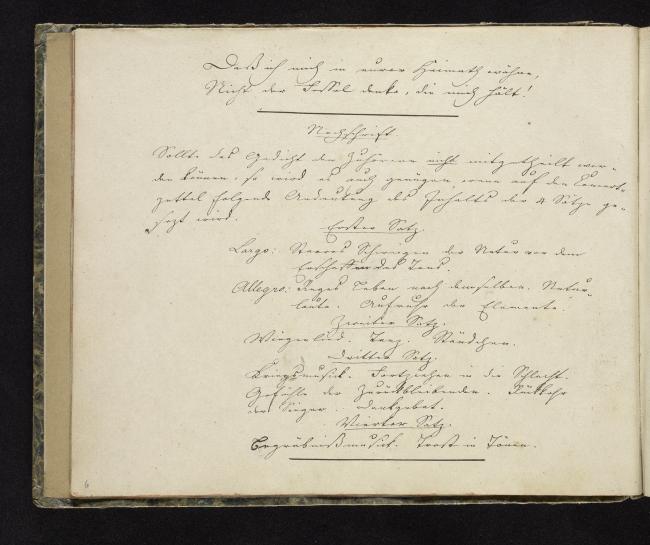 Daß ich mich in eurer Heimath wähne,
Nicht der Fessel denke, die mich hält!
Nachschrift.
Sollte das Gedicht den Zuhörern nicht mitgetheilt wer-
den können, so wird es auch genügen, wenn auf den Concert-
zettel folgende Andeutung des Inhalts der 4 Sätze ge-
sezt wird.
Erster Satz.
Largo: Starres Schweigen der Natur vor dem
Erschaffen des Tons.
Allegro: Reges Leben nach demselben. Natur-
laute. Aufruhr der Elemente.
Zweiter Satz.
Wiegenlied. Tanz. Ständchen.
Dritter Satz.
Kriegsmusik. Fortziehen in die Schlacht.
Gefühle der Zurükbleibenden. Rükkehr
der Sieger. Dankgebet.
Vierter Satz.
Begräbnißmusik. Trost in Tönen.
6